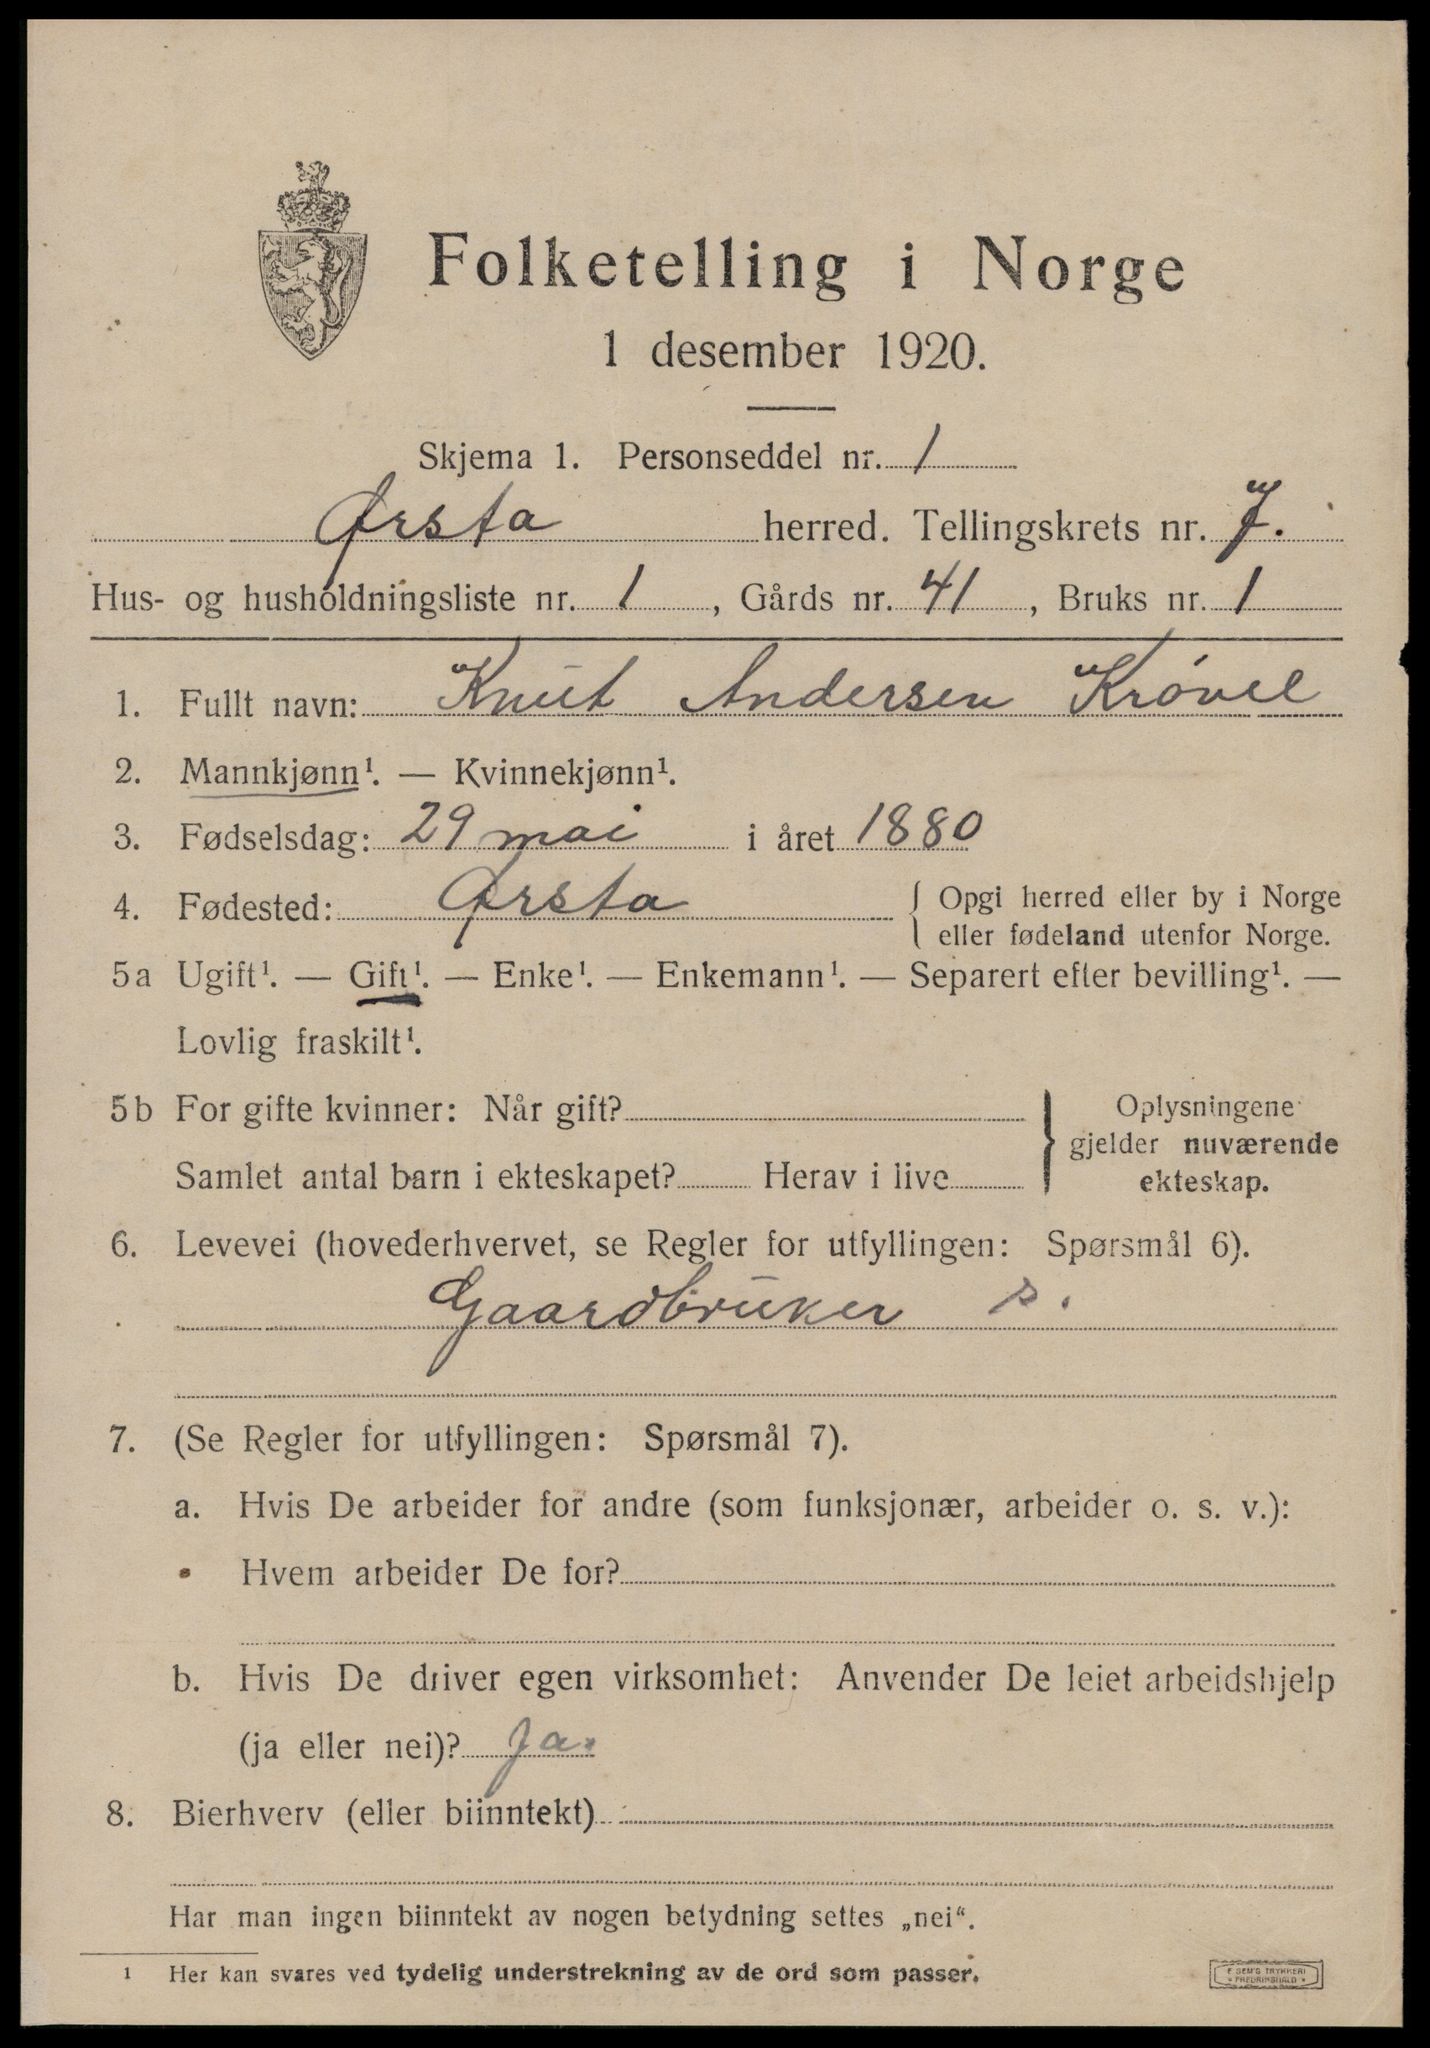 Folketelling i Norge
1 desember 1920.
Skjema 1. Personseddel nr. 1
Ørsta herred. Tellingskrets nr. 7.
Hus- og husholdningsliste nr. 1, Gårds nr. 41, Bruks nr. 1
1. Fullt navn: Knut Andersen Krøvel
2. Mannkjønn¹. — Kvinnekjønn¹.
3. Fødselsdag: 29 mai i året 1880
4. Fødested: Ørsta { Opgi herred eller by i Norge
eller fødeland utenfor Norge.
5a Ugift¹. — Gift¹. — Enke¹. — Enkemann¹. — Separert efter bevilling¹. —
Lovlig fraskilt¹.
5b For gifte kvinner: Når gift? } Oplysningene
gjelder nuværende
Samlet antal barn i ekteskapet? Herav i live ekteskap.
6. Levevei (hovederhvervet, se Regler for utfyllingen: Spørsmål 6).
Gaardbruker s.
7. (Se Regler for utfyllingen: Spørsmål 7).
a. Hvis De arbeider for andre (som funksjonær, arbeider o. s. v.):
Hvem arbeider De for?
b. Hvis De driver egen virksomhet: Anvender De leiet arbeidshjelp
(ja eller nei)? Ja.
8. Bierhverv (eller biinntekt)
Har man ingen biinntekt av nogen betydning settes „nei“.
¹ Her kan svares ved tydelig understrekning av de ord som passer.
E SEM'S TRYKKERI
FREDRIKSHALD